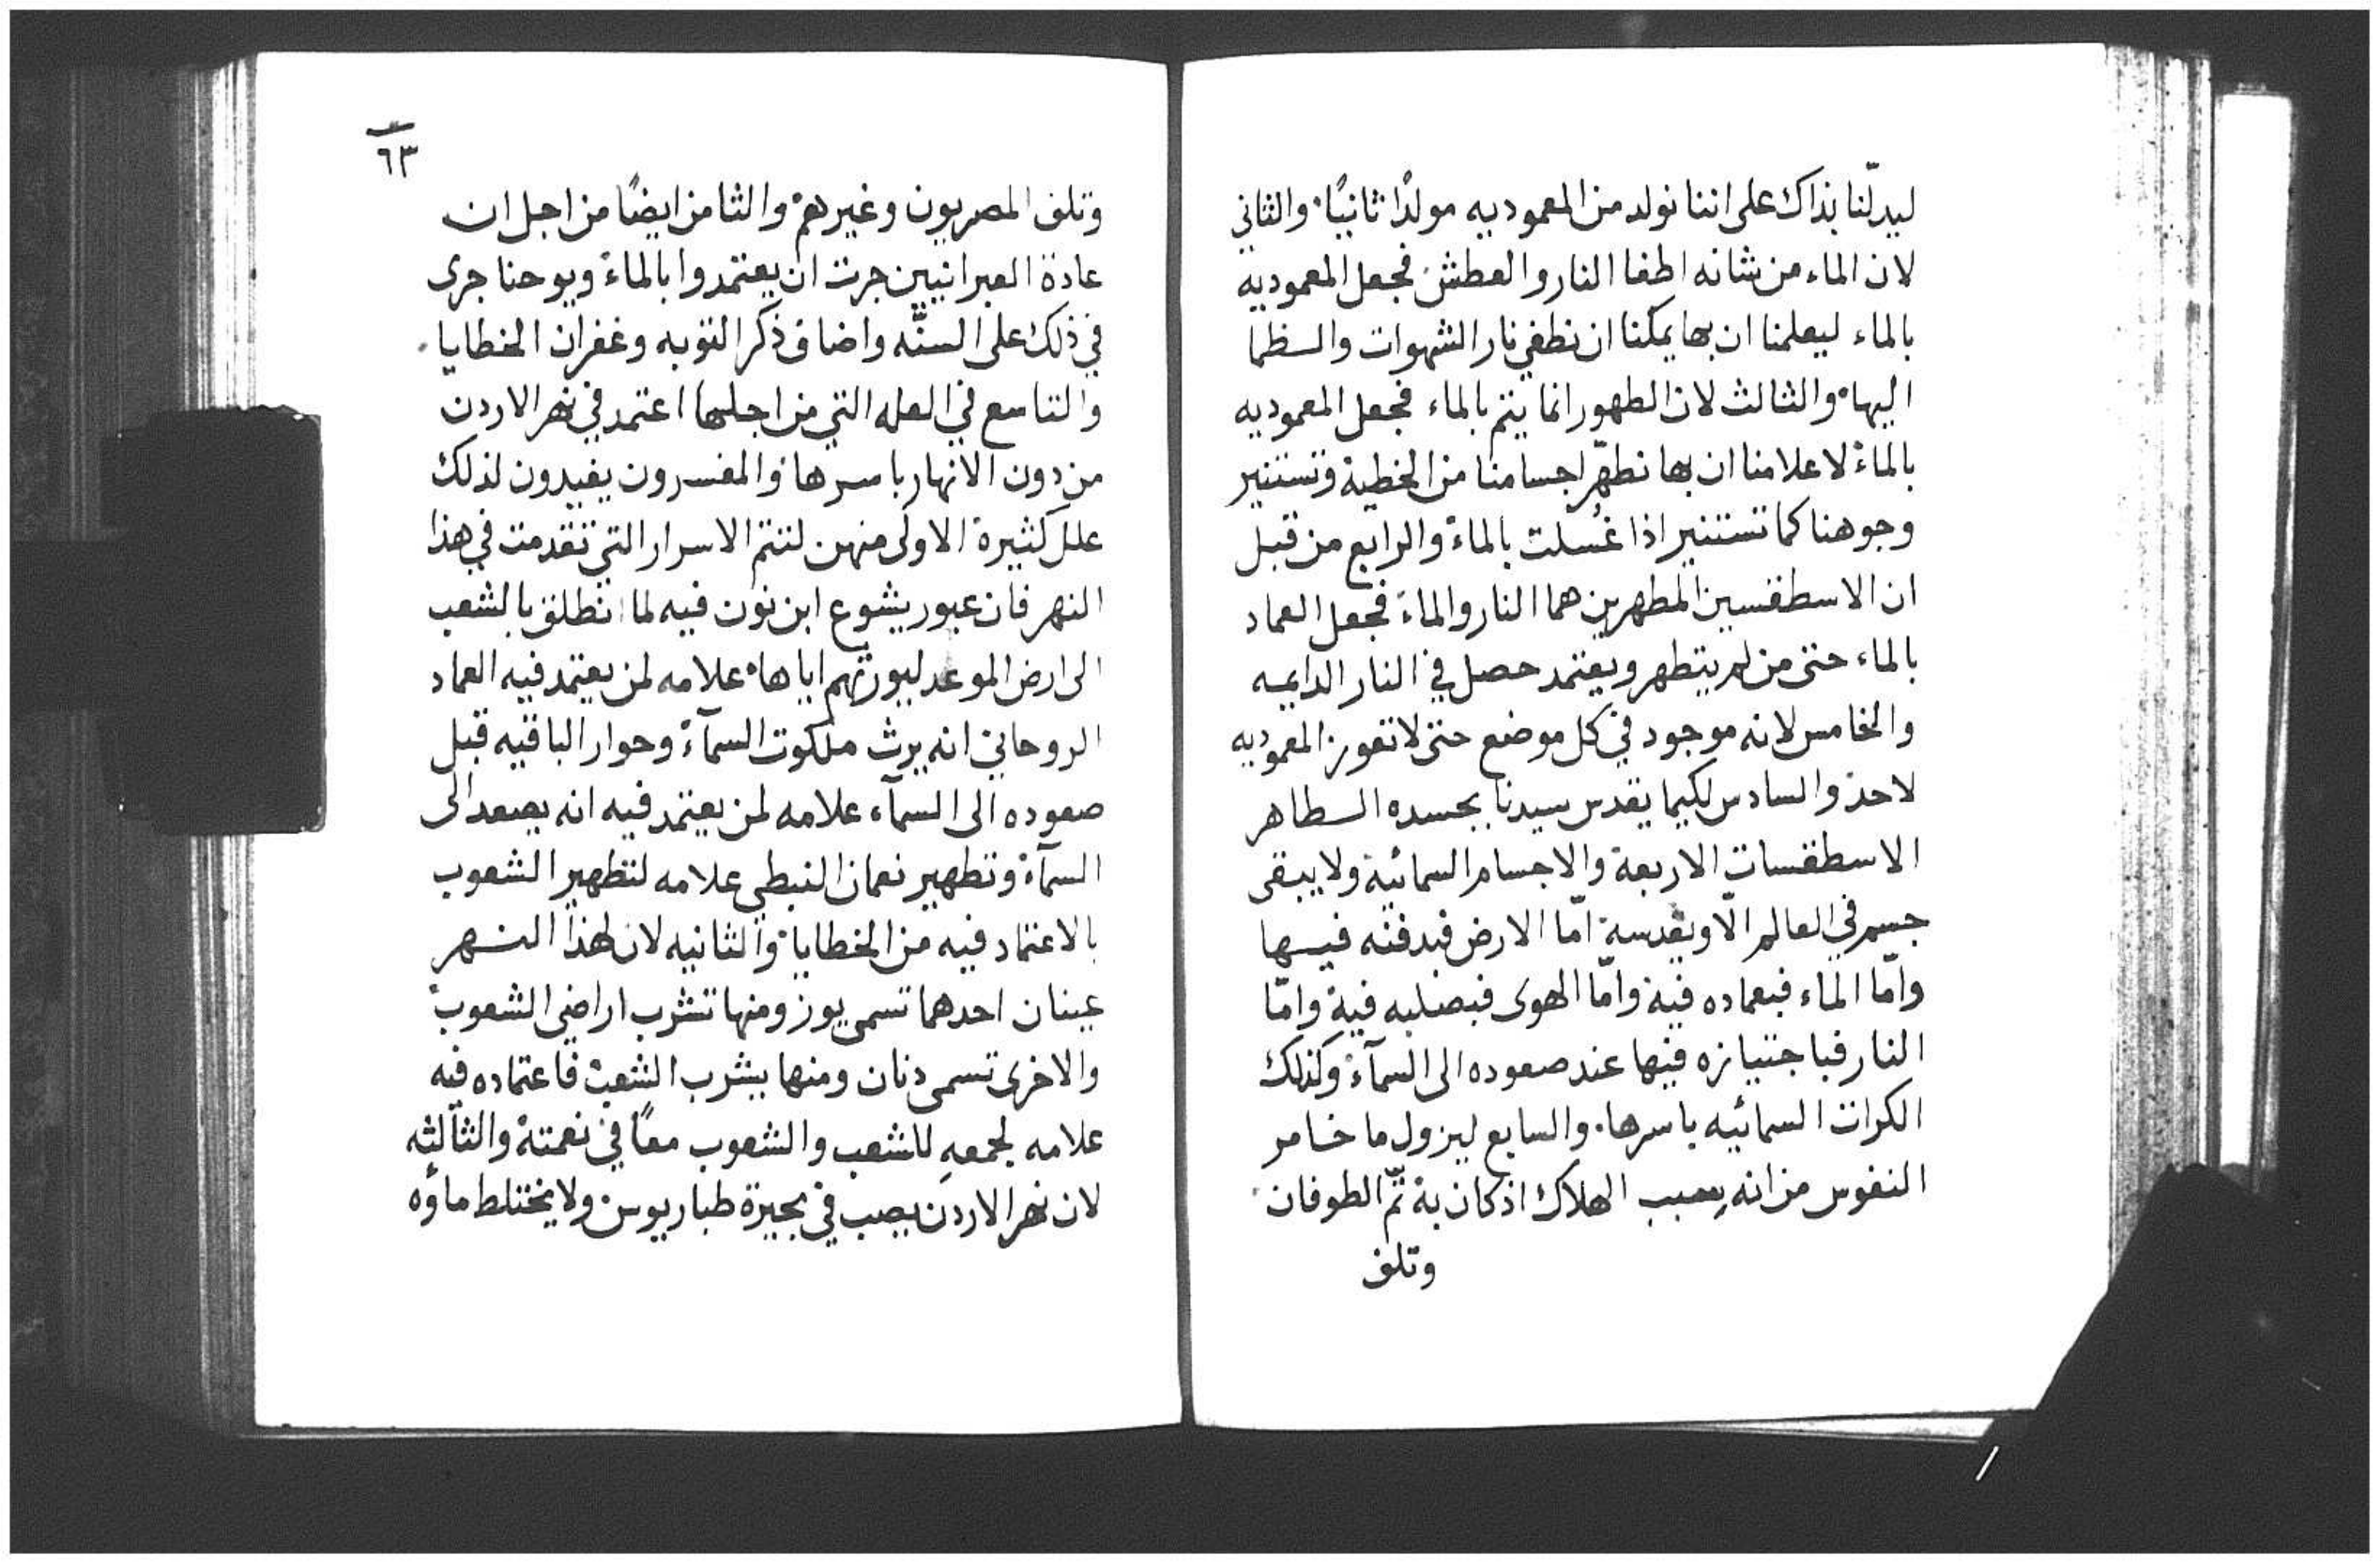 ليدلّنا بذاك على اننا نولد من المعموديه مولدًا ثانيًا والثاني
لان الماء من شانه اطفا النار والعطش فجعل المعموديه
بالماء ليعلمنا ان بها يمكنا ان نطفي نار الشهوات والظما
اليها والثالث لان الطهور انما يتم بالماء فجعل المعموديه
بالماء لاعلامنا ان بها نطهّر اجسامنا من الخطية وتستنير
وجوهنا كما تستنير اذا غُسلت بالماء والرابع من قبل
ان الاسطقسين المطهرين هما النار والماء فجعل العماد
بالماء حتى من لم يتطهر ويعتمد حصل في النار الدايمه
والخامس لانه موجود في كل موضع حتى لا تعوز المعموديه
لاحد والسادس لكيما يقدس سيدنا بجسده الطاهر
الاسطقسات الاربعة والاجسام السمائية ولا يبقى
جسم في العالم الّا ويقدسه امّا الارض فبدفنه فيها
وامّا الماء فبعماده فيه وامّا الهوى فبصلبه فيه وامّا
النار فباجتيازه فيها عند صعوده الى السمآء وكذلك
الكرات السمائيه باسرها والسابع ليزول ما خامر
النفوس من انه سبب الهلاك اذ كان به تمّ الطوفان
وتلف
٦٣
وتلف المصريون وغيرهم والثامن ايضًا من اجل ان
عادة العبرانيين جرت ان يعتمدوا بالماء ويوحنا جرى
في ذلك على السنّه واضاف ذكر التوبه وغفران الخطايا
والتاسع في العله التي من اجلها اعتمد في نهر الاردن
من دون الانهار باسرها والمفسرون يفيدون لذلك
علل كثيرة الاولى منهن لتتم الاسرار التي تقدمت في هذا
النهر فان عبور يشوع ابن نون فيه لما انطلق بالشعب
الى ارض الموعد ليورثهم اياها علامه لمن يعتمد فيه العماد
الروحاني انه يرث ملكوت السمآء وحوار الباقيه قبل
صعوده الى السمآء علامه لمن يعتمد فيه انه يصعد الى
السمآء وتطهير نعمان النبطي علامه لتطهير الشعوب
بالاعتماد فيه من الخطايا والثانيه لان لهذا النهر
عينان احدهما تسمى يوز ومنها تشرب اراضي الشعوب
والاخرى تسمى دنان ومنها يشرب الشعب فاعتماده فيه
علامه لجمعهِ للشعب والشعوب معًا في نعمته والثالثه
لان نهر الاردن يصب في بحيرة طباريوس ولا يختلط ماؤه